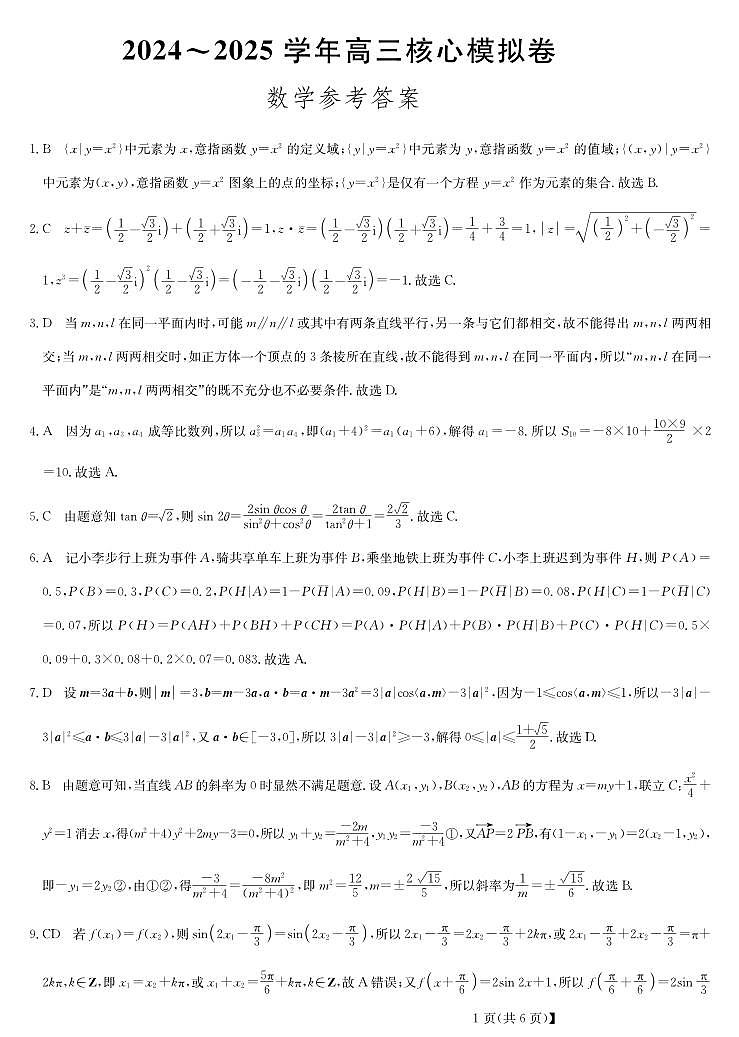 2024～2025 学年高三核心模拟卷
数学参考答案
1. B {x|y=x²}中元素为 x,意指函数 y=x² 的定义域;{y|y=x²}中元素为 y,意指函数 y=x² 的值域;{(x,y)|y=x²}
中元素为(x,y),意指函数 y=x² 图象上的点的坐标;{y=x²}是仅有一个方程 y=x² 作为元素的集合. 故选 B.
2. C z+z̄=(1/2-√3/2 i)+(1/2+√3/2 i)=1,z·z̄=(1/2-√3/2 i)(1/2+√3/2 i)=1/4+3/4=1,|z|=√((1/2)²+(-√3/2)²)=
1,z³=(1/2-√3/2 i)²(1/2-√3/2 i)=(-1/2-√3/2 i)(1/2-√3/2 i)=-1. 故选 C.
3. D 当 m,n,l 在同一平面内时,可能 m∥n∥l 或其中有两条直线平行,另一条与它们都相交,故不能得出 m,n,l 两两相
交;当 m,n,l 两两相交时,如正方体一个顶点的 3 条棱所在直线,故不能得到 m,n,l 在同一平面内,所以“m,n,l 在同一
平面内”是“m,n,l 两两相交”的既不充分也不必要条件. 故选 D.
4. A 因为 a₁,a₃,a₄ 成等比数列,所以 a₃²=a₁a₄,即(a₁+4)²=a₁(a₁+6),解得 a₁=-8. 所以 S₁₀=-8×10+10×9/2×2
=10. 故选 A.
5. C 由题意知 tan θ=√2,则 sin 2θ=2sin θcos θ/(sin²θ+cos²θ)=2tan θ/(tan²θ+1)=2√2/3. 故选 C.
6. A 记小李步行上班为事件 A,骑共享单车上班为事件 B,乘坐地铁上班为事件 C,小李上班迟到为事件 H,则 P(A)=
0.5,P(B)=0.3,P(C)=0.2,P(H|A)=1-P(H̄|A)=0.09,P(H|B)=1-P(H̄|B)=0.08,P(H|C)=1-P(H̄|C)
=0.07,所以 P(H)=P(AH)+P(BH)+P(CH)=P(A)·P(H|A)+P(B)·P(H|B)+P(C)·P(H|C)=0.5×
0.09+0.3×0.08+0.2×0.07=0.083. 故选 A.
7. D 设 m=3a+b,则|m|=3,b=m-3a,a·b=a·m-3a²=3|a|cos⟨a,m⟩-3|a|²,因为-1≤cos⟨a,m⟩≤1,所以-3|a|-
3|a|²≤a·b≤3|a|-3|a|²,又 a·b∈[-3,0],所以 3|a|-3|a|²≥-3,解得 0≤|a|≤(1+√5)/2. 故选 D.
8. B 由题意可知,当直线 AB 的斜率为 0 时显然不满足题意. 设 A(x₁,y₁),B(x₂,y₂),AB 的方程为 x=my+1,联立 C:x²/4+
y²=1 消去 x,得(m²+4)y²+2my-3=0,所以 y₁+y₂=-2m/(m²+4),y₁y₂=-3/(m²+4)①,又A͞P⃗=2P͞B⃗,有(1-x₁,-y₁)=2(x₂-1,y₂),
即-y₁=2y₂②,由①②,得-3/(m²+4)=-8m²/(m²+4)²,即 m²=12/5,m=±2√15/5,所以斜率为1/m=±√15/6. 故选 B.
9. CD 若 f(x₁)=f(x₂),则 sin(2x₁-π/3)=sin(2x₂-π/3),所以 2x₁-π/3=2x₂-π/3+2kπ,或 2x₁-π/3+2x₂-π/3=π+
2kπ,k∈Z,即 x₁=x₂+kπ,或 x₁+x₂=5π/6+kπ,k∈Z,故 A 错误;又 f(x+π/6)=2sin 2x+1,所以 f(π/6+π/6)=2sin π/3
1 页(共 6 页)】